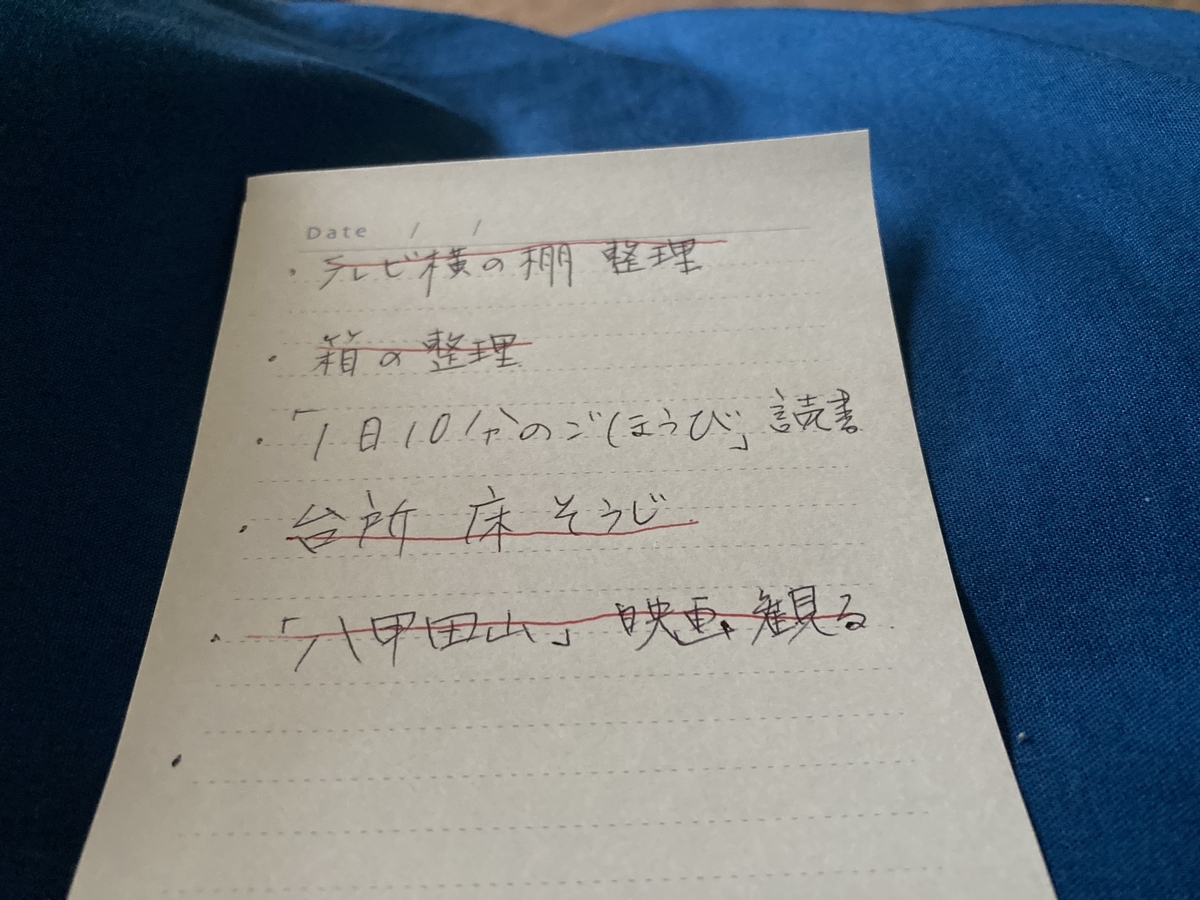 Date / /
・テレビ横の棚 整理
・箱の整理
・「1日10分のごほうび」読書
・台所 床 そうじ
・「八甲田山」映画観る
・